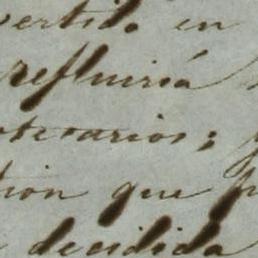 vertido en
refluiría
otecarios;
tion que p
decidida